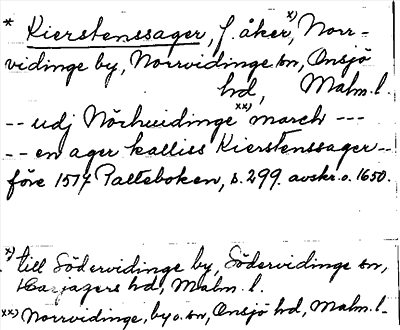 * Kierstenssager, f. åker, x) Norr-
vidinge by, Norrvidinge sn, Onsjö
hd, Malm. l.
-- udj Nörhuidinge xx) march ---
-- en ager kalliss Kierstenssager --
före 1517 Palteboken, s. 299. avskr. o. 1650.
x) till Södervidinge by, Södervidinge sn,
Harjagers hd, Malm. l.
xx) Norrvidinge, by o. sn, Onsjö hd, Malm. l.